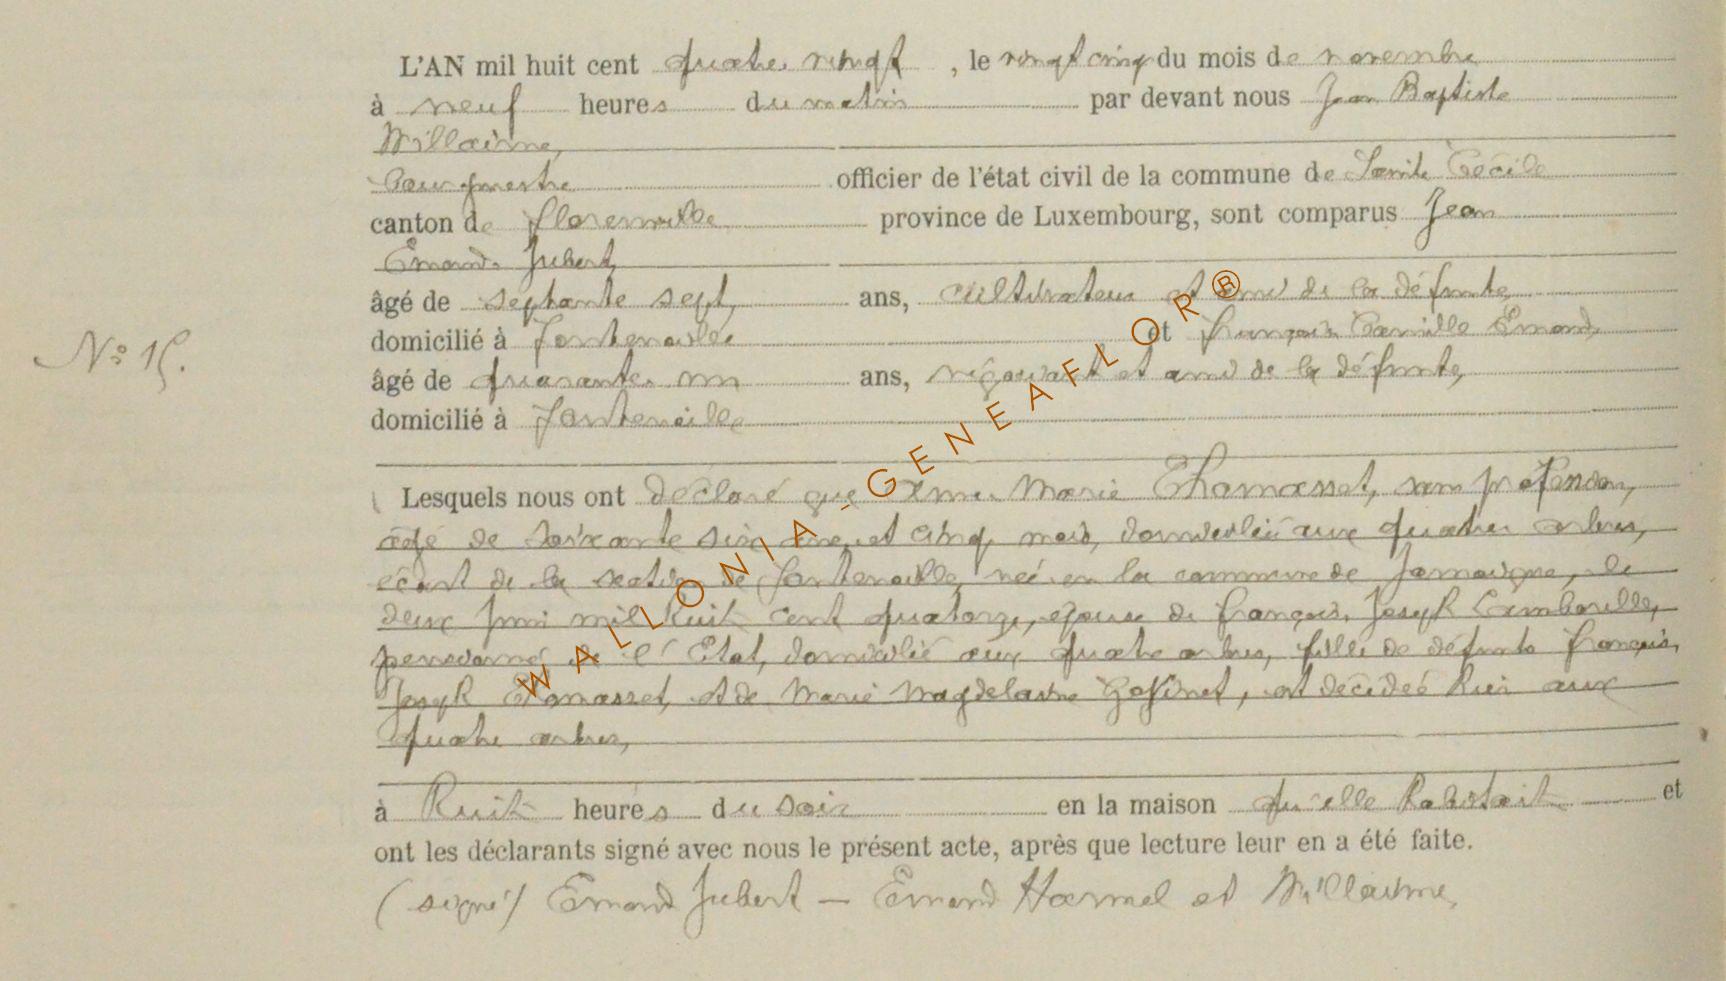 L'AN mil huit cent quatre vingt, le vingt cinq du mois de novembre
à neuf heures du matin par devant nous Jean Baptiste
Willaime,
bourgmestre officier de l'état civil de la commune de Sainte Cécile
canton de Florenville province de Luxembourg, sont comparus Jean
Emond Jubert,
âgé de septante sept, ans, cultivateur et ami de la défunte,
domicilié à Fontenoille et François Camille Emond,
N° 15.
âgé de quarante un ans, négociant et ami de la défunte,
domicilié à Fontenoille
Lesquels nous ont déclaré que Anne Marie Thomasset, sans profession,
âgé de soixante six ans et cinq mois, domiciliée aux quatre arbres,
écart de la section de Fontenoille, née en la commune de Jamoigne, le
deux Juin mil huit cent quatorze, épouse de François Joseph Lambovelle,
pensionné de l'Etat, domicilié aux quatre arbres, fille de défunts François
Joseph Thomasset, et de Marie Magdelaine Goffinet, est décédée hier aux
quatre arbres,
à huit heures du soir en la maison qu'elle habitait et
ont les déclarants signé avec nous le présent acte, après que lecture leur en a été faite.
(signé) Emond Jubert — Emond Harmel et Willaime,
WALLONIA-GENEAFLOR®